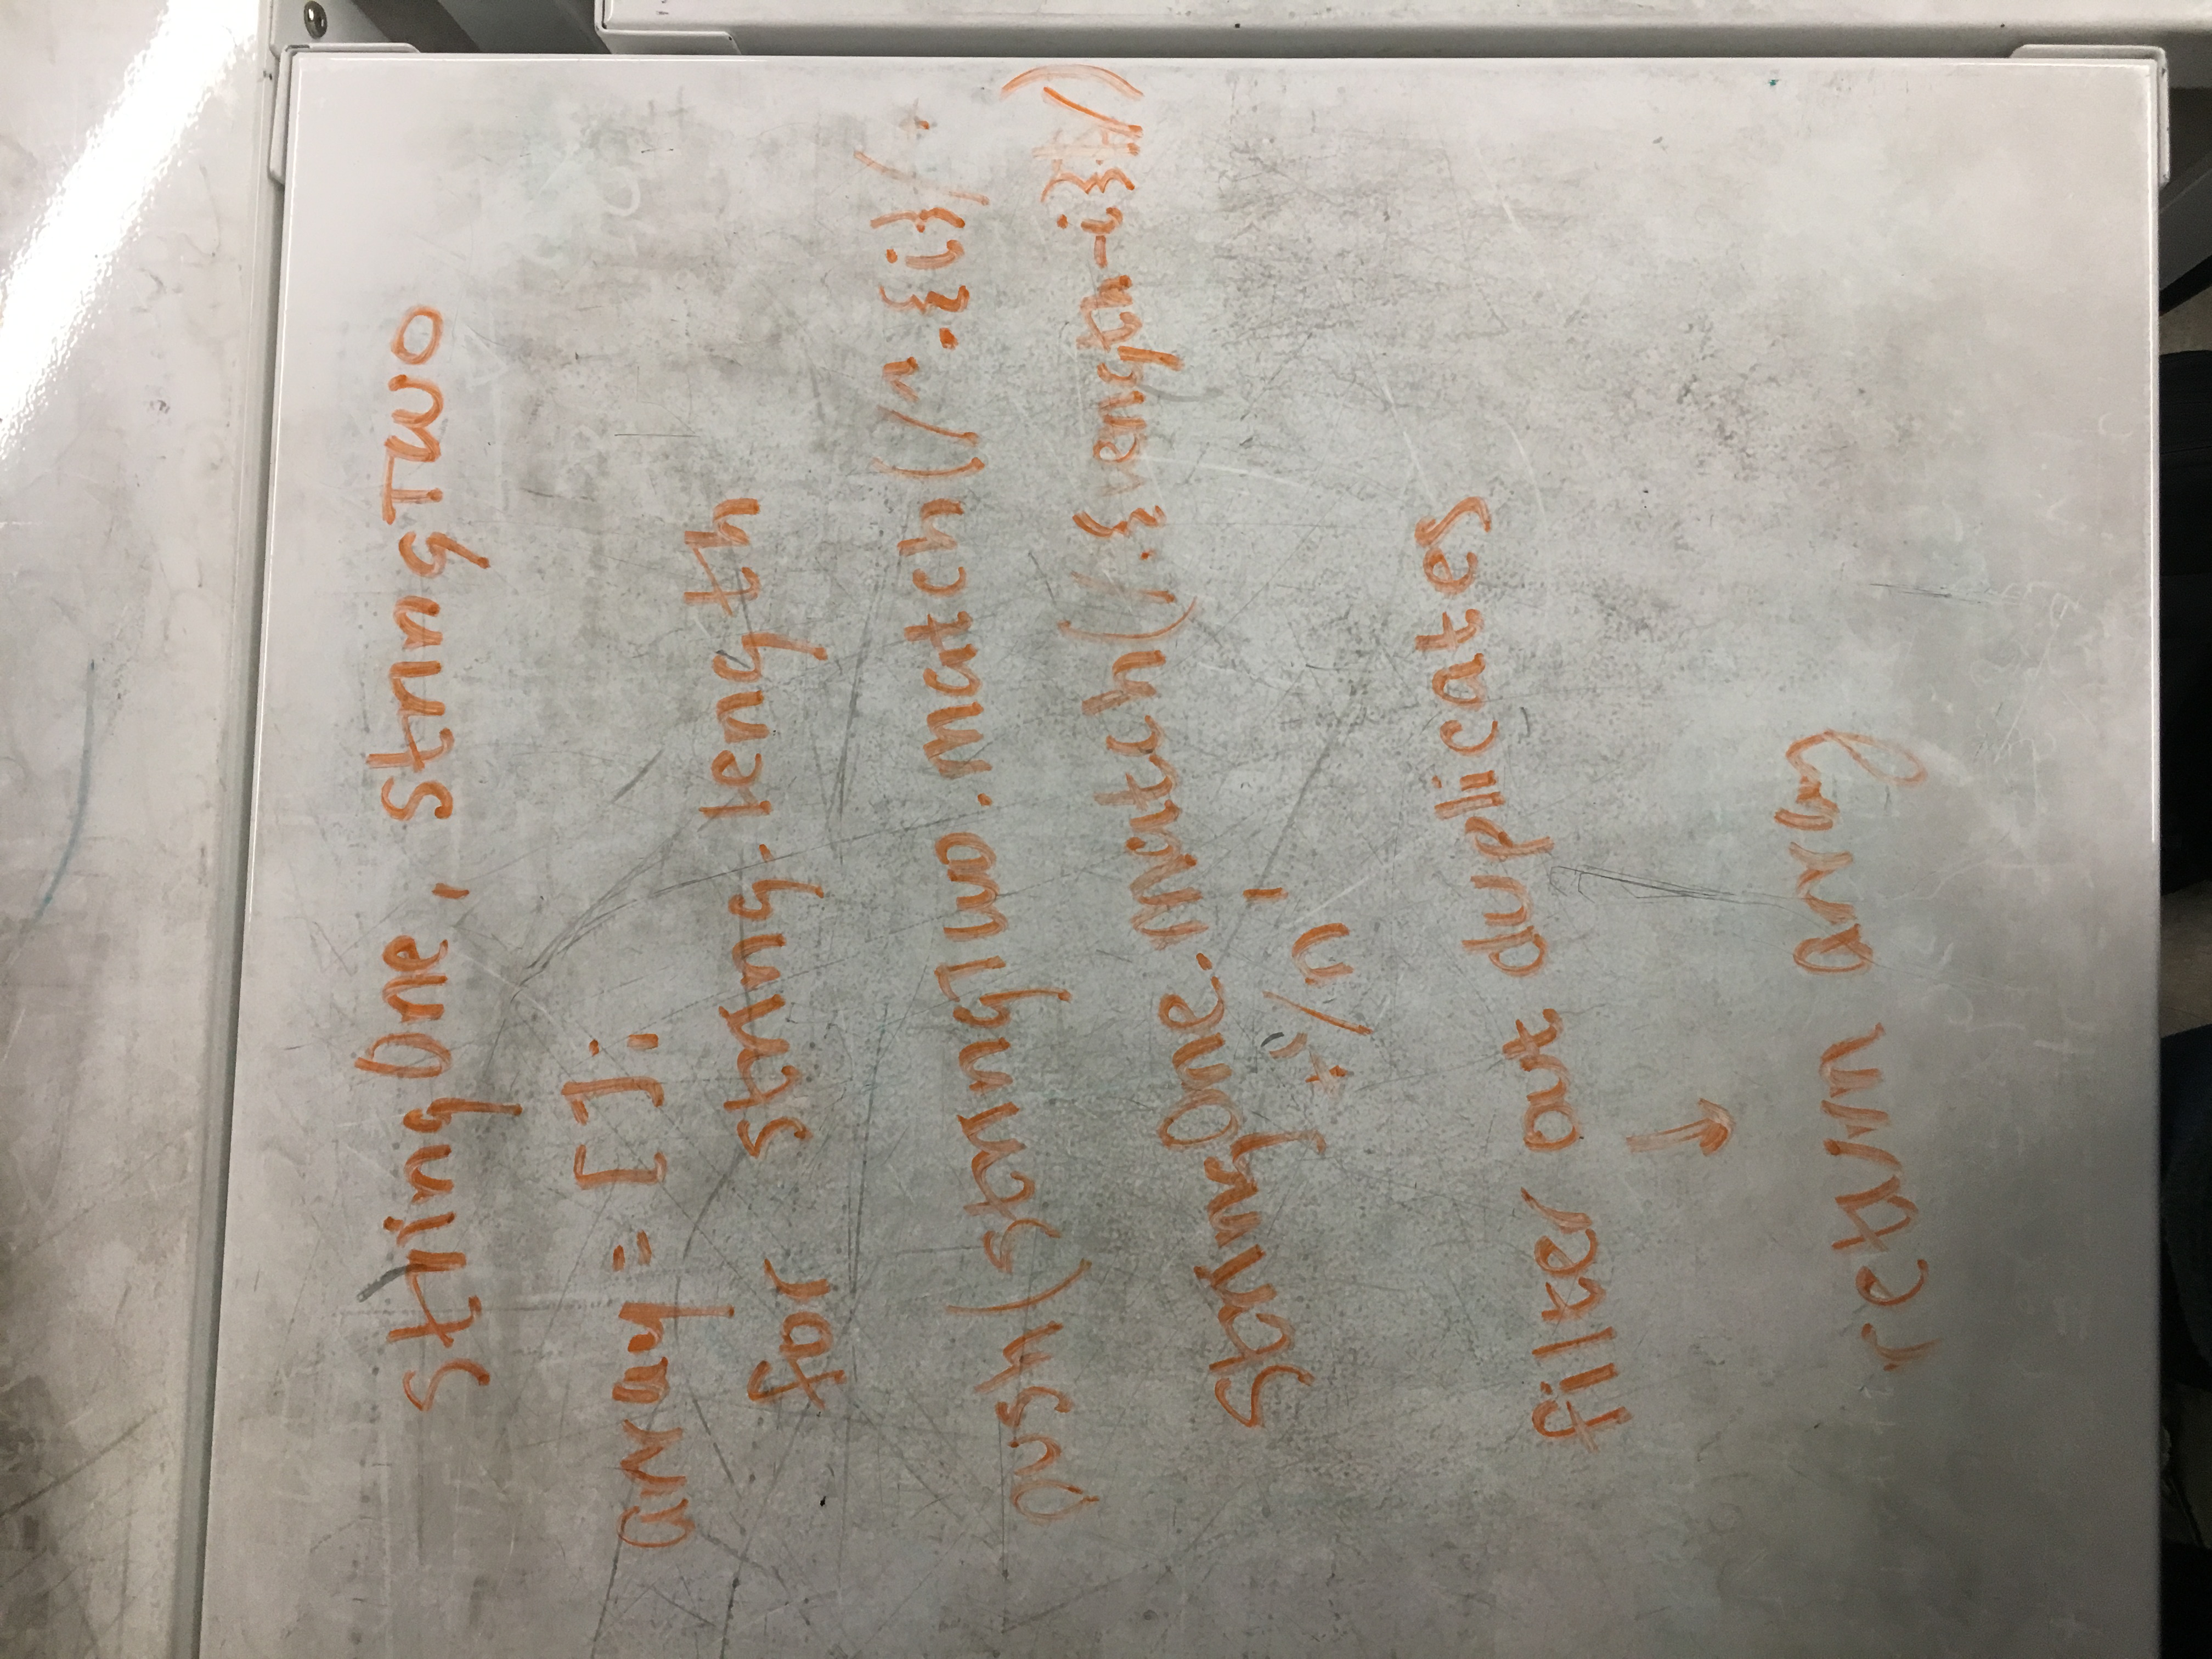 stringOne, stringTwo
array = [];
for string.length
push(stringTwo.match(/^.{i}/ +
stringOne.match(/.{length-i}$/)
+'/n'
filter out duplicates
↓
return array